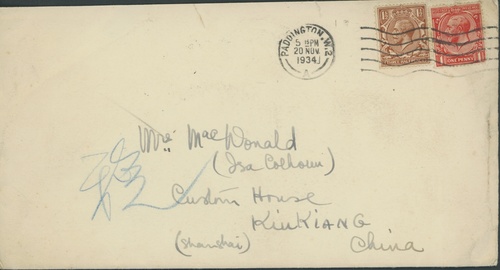 PADDINGTON. W.2
5 PM
20 NOV
1934
A
ONE PENNY
Mrs MacDonald
(Isa Colhoun)
Custom House
KIUKIANG
(Shanghai)
China